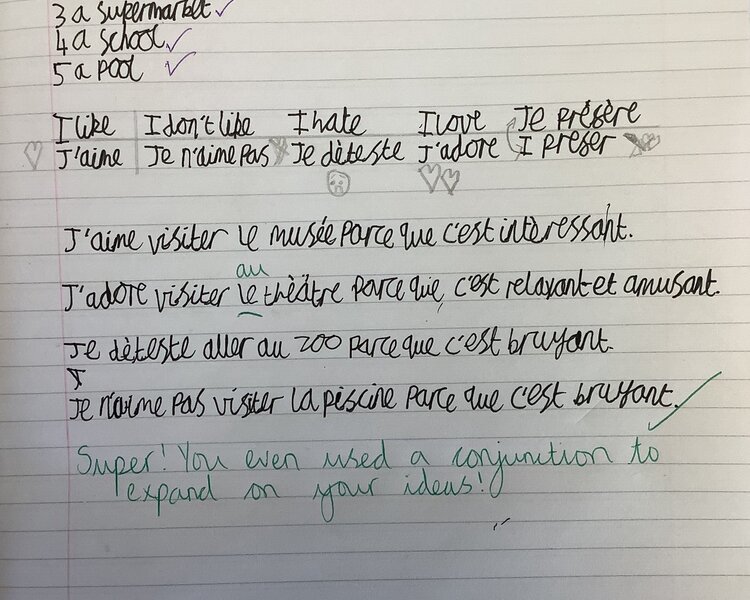 3 a supermarket ✓
4 a school ✓
5 a pool ✓
I like I don't like I hate I love Je préfère
J'aime Je n'aime pas Je dèteste J'adore I prefer
J'aime visiter le musée parce que c'est intèressant.
au
J'adore visiter le thèâtre parce que, c'est relaxant et amusant.
Je dèteste aller au zoo parce que c'est bruyant.
Je n'aime pas visiter la piscine parce que c'est bruyant. ✓
Super! You even used a conjunction to
expand on your ideas!